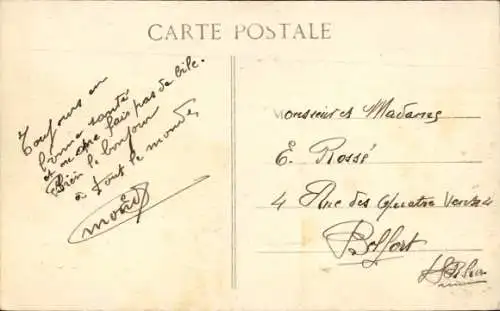 CARTE POSTALE
Toujours en
bonne santé
et on ne fais pas de bile.
Bien le bonjour
à tout le monde
Monsieur et Madames
E. Rossé
4 Rue des Quatre Vents
Belfort